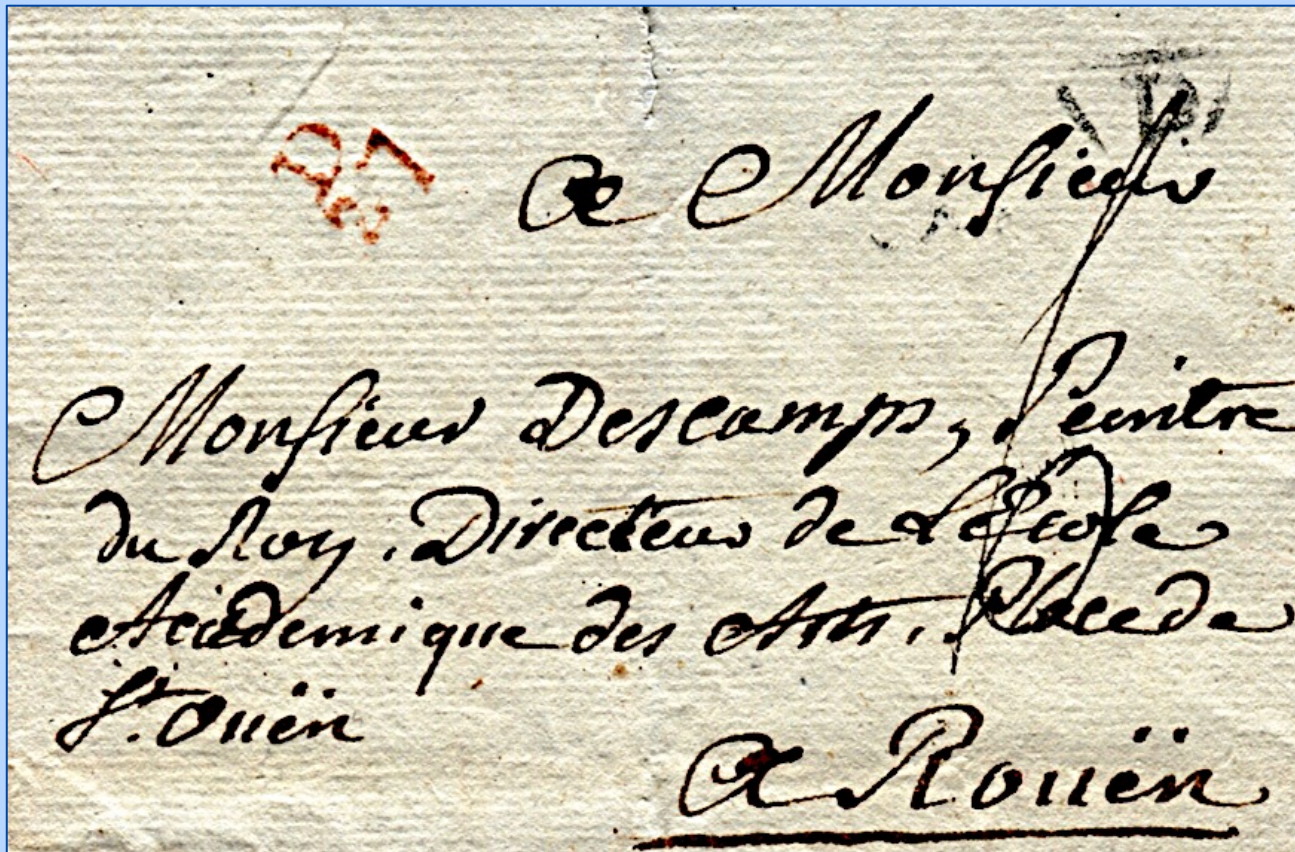 A Monsieur
Monsieur Descamps, Peintre
du Roy. Directeur de L'Ecole
Academique des Arts. Place de
St. Ouën
A Rouën